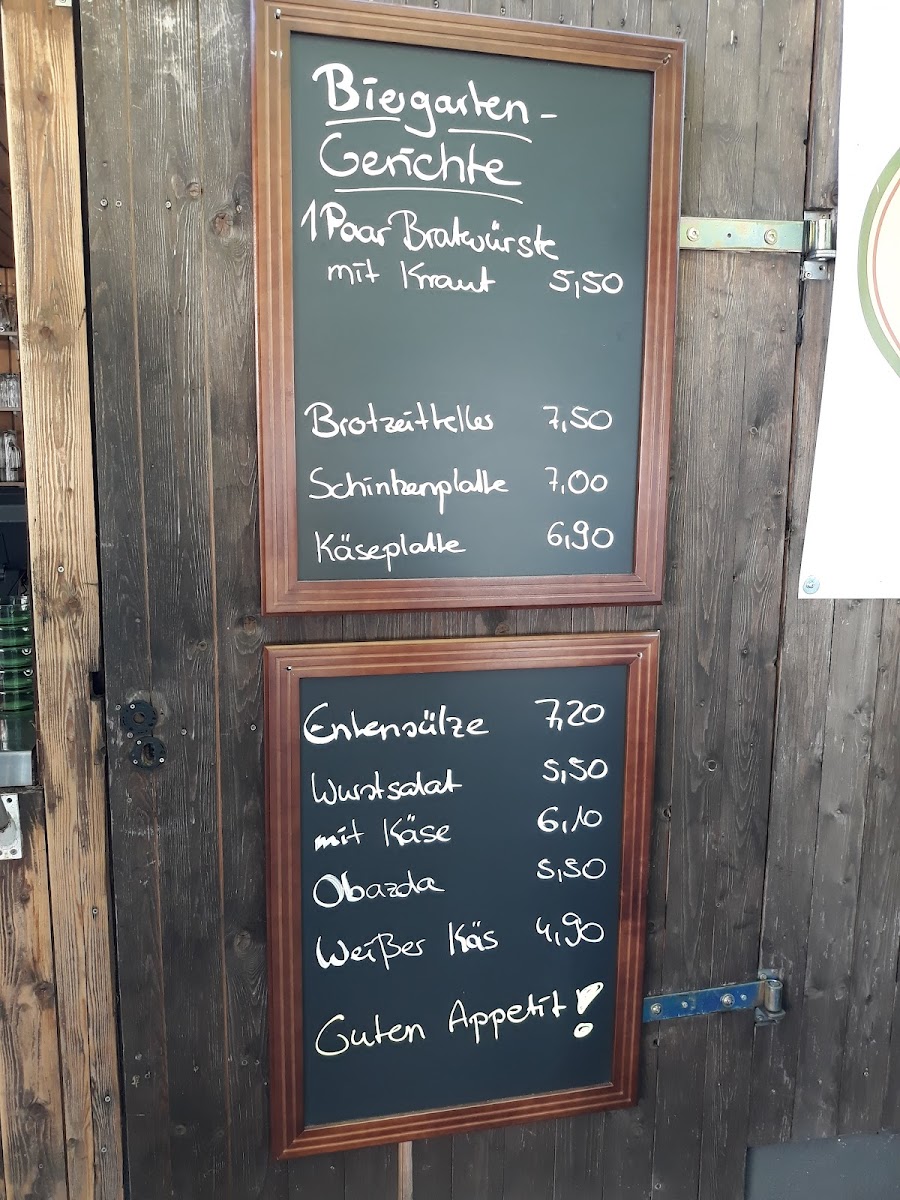 Biergarten-
Gerichte
1 Paar Bratwürste
mit Kraut 5,50
Brotzeitteller 7,50
Schinkenplatte 7,00
Käseplatte 6,90
Entensülze 7,20
Wurstsalat 5,50
mit Käse 6,10
Obazda 5,50
Weißer Käs 4,90
Guten Appetit!